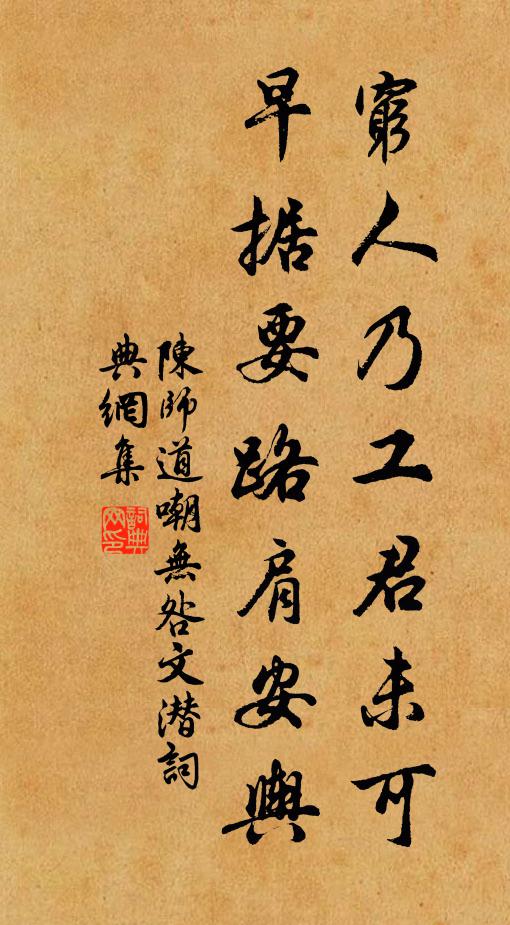 窮人乃工君未可
早据要路肩安輿
陳師道嘲無咎文潜詞
典網集
詞典網印